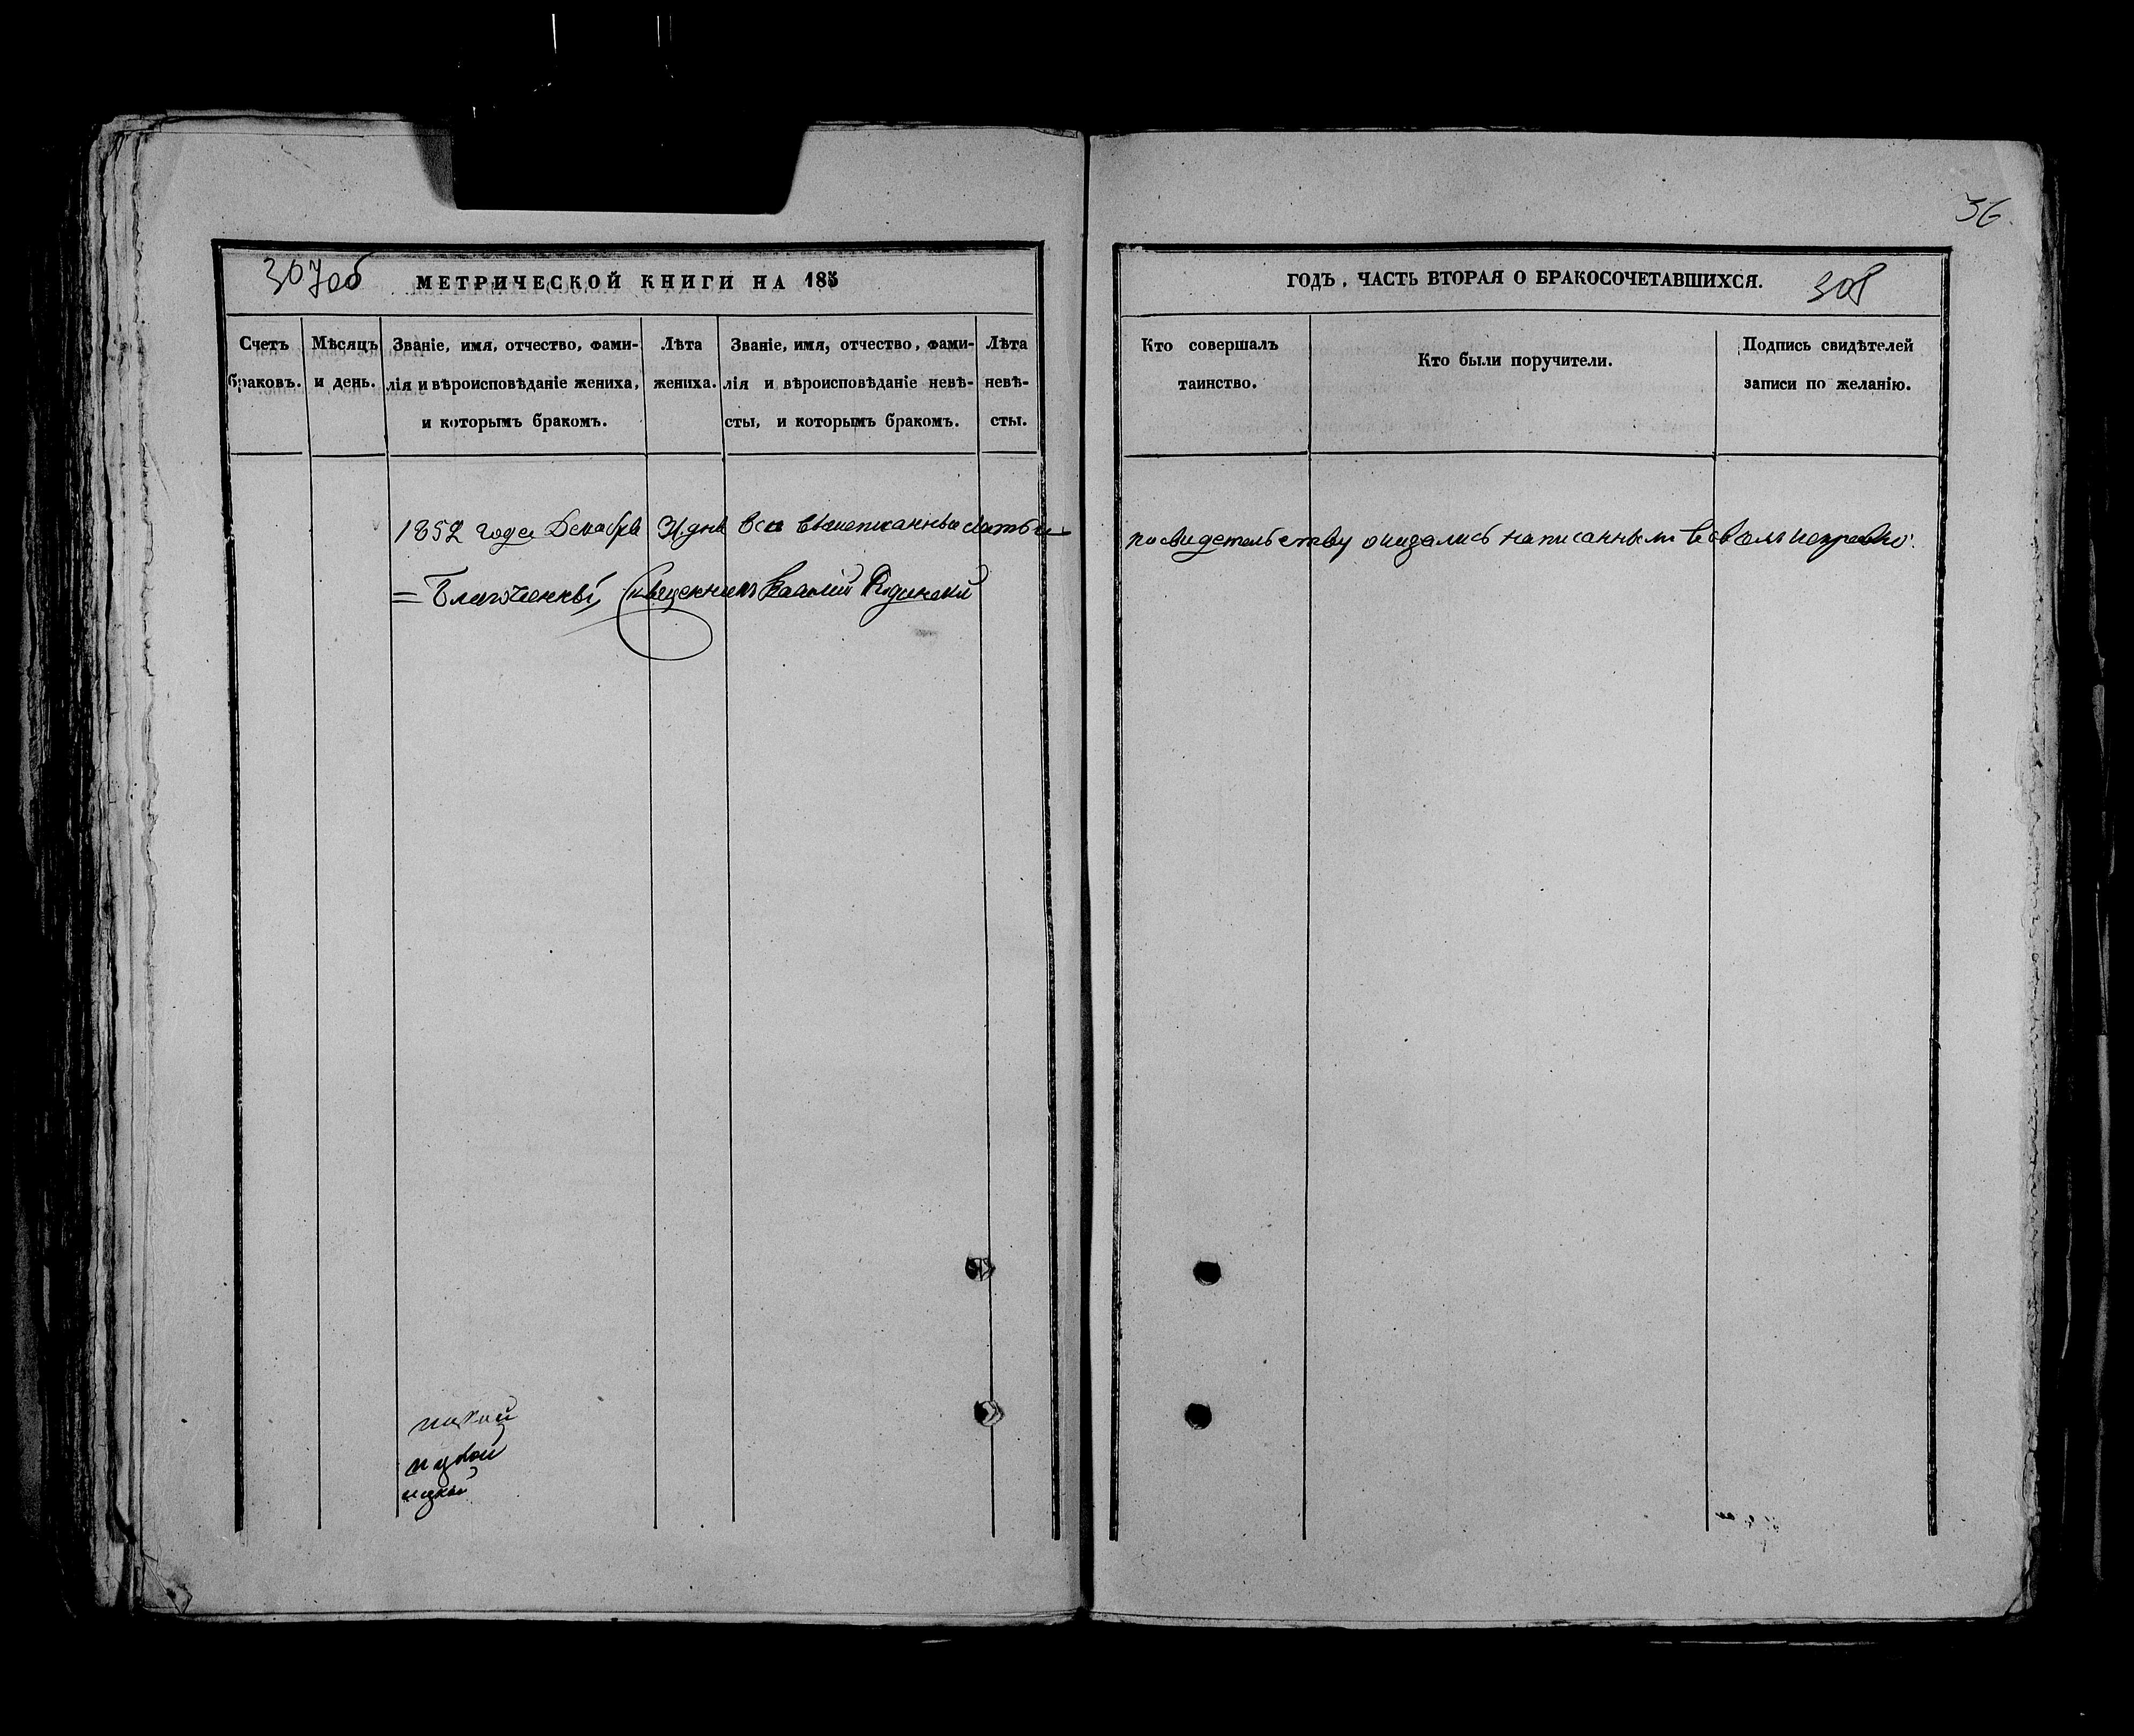 36.
307 об МЕТРИЧЕСКОЙ КНИГИ НА 185
ГОДЪ, ЧАСТЬ ВТОРАЯ О БРАКОСОЧЕТАВШИХСЯ. 308
Счетъ браковъ.
Мѣсяцъ и день.
Званіе, имя, отчество, фами-
лія и вѣроисповѣданіе жениха,
и которымъ бракомъ.
Лѣта
жениха.
Званіе, имя, отчество, фами-
лія и вѣроисповѣданіе невѣ-
сты, и которымъ бракомъ.
Лѣта
невѣ-
сты.
Кто совершалъ
таинство.
Кто были поручители.
Подпись свидѣтелей
записи по желанію.
1852 года Декабря 31 дня все вышеписанные статьи
по свидетельству оказались написанными
Благочинный Священникъ